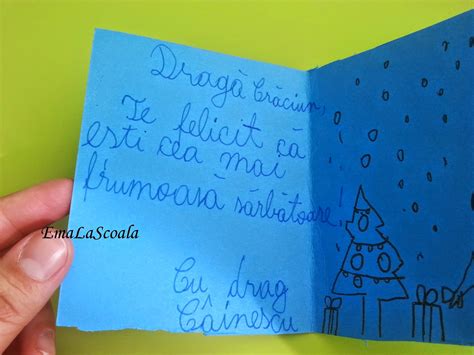 Dragă Crăciun,
Te felicit că
esti cea mai
frumoasă sărbătoare!
Cu drag
Câinescu
EmaLaScoala